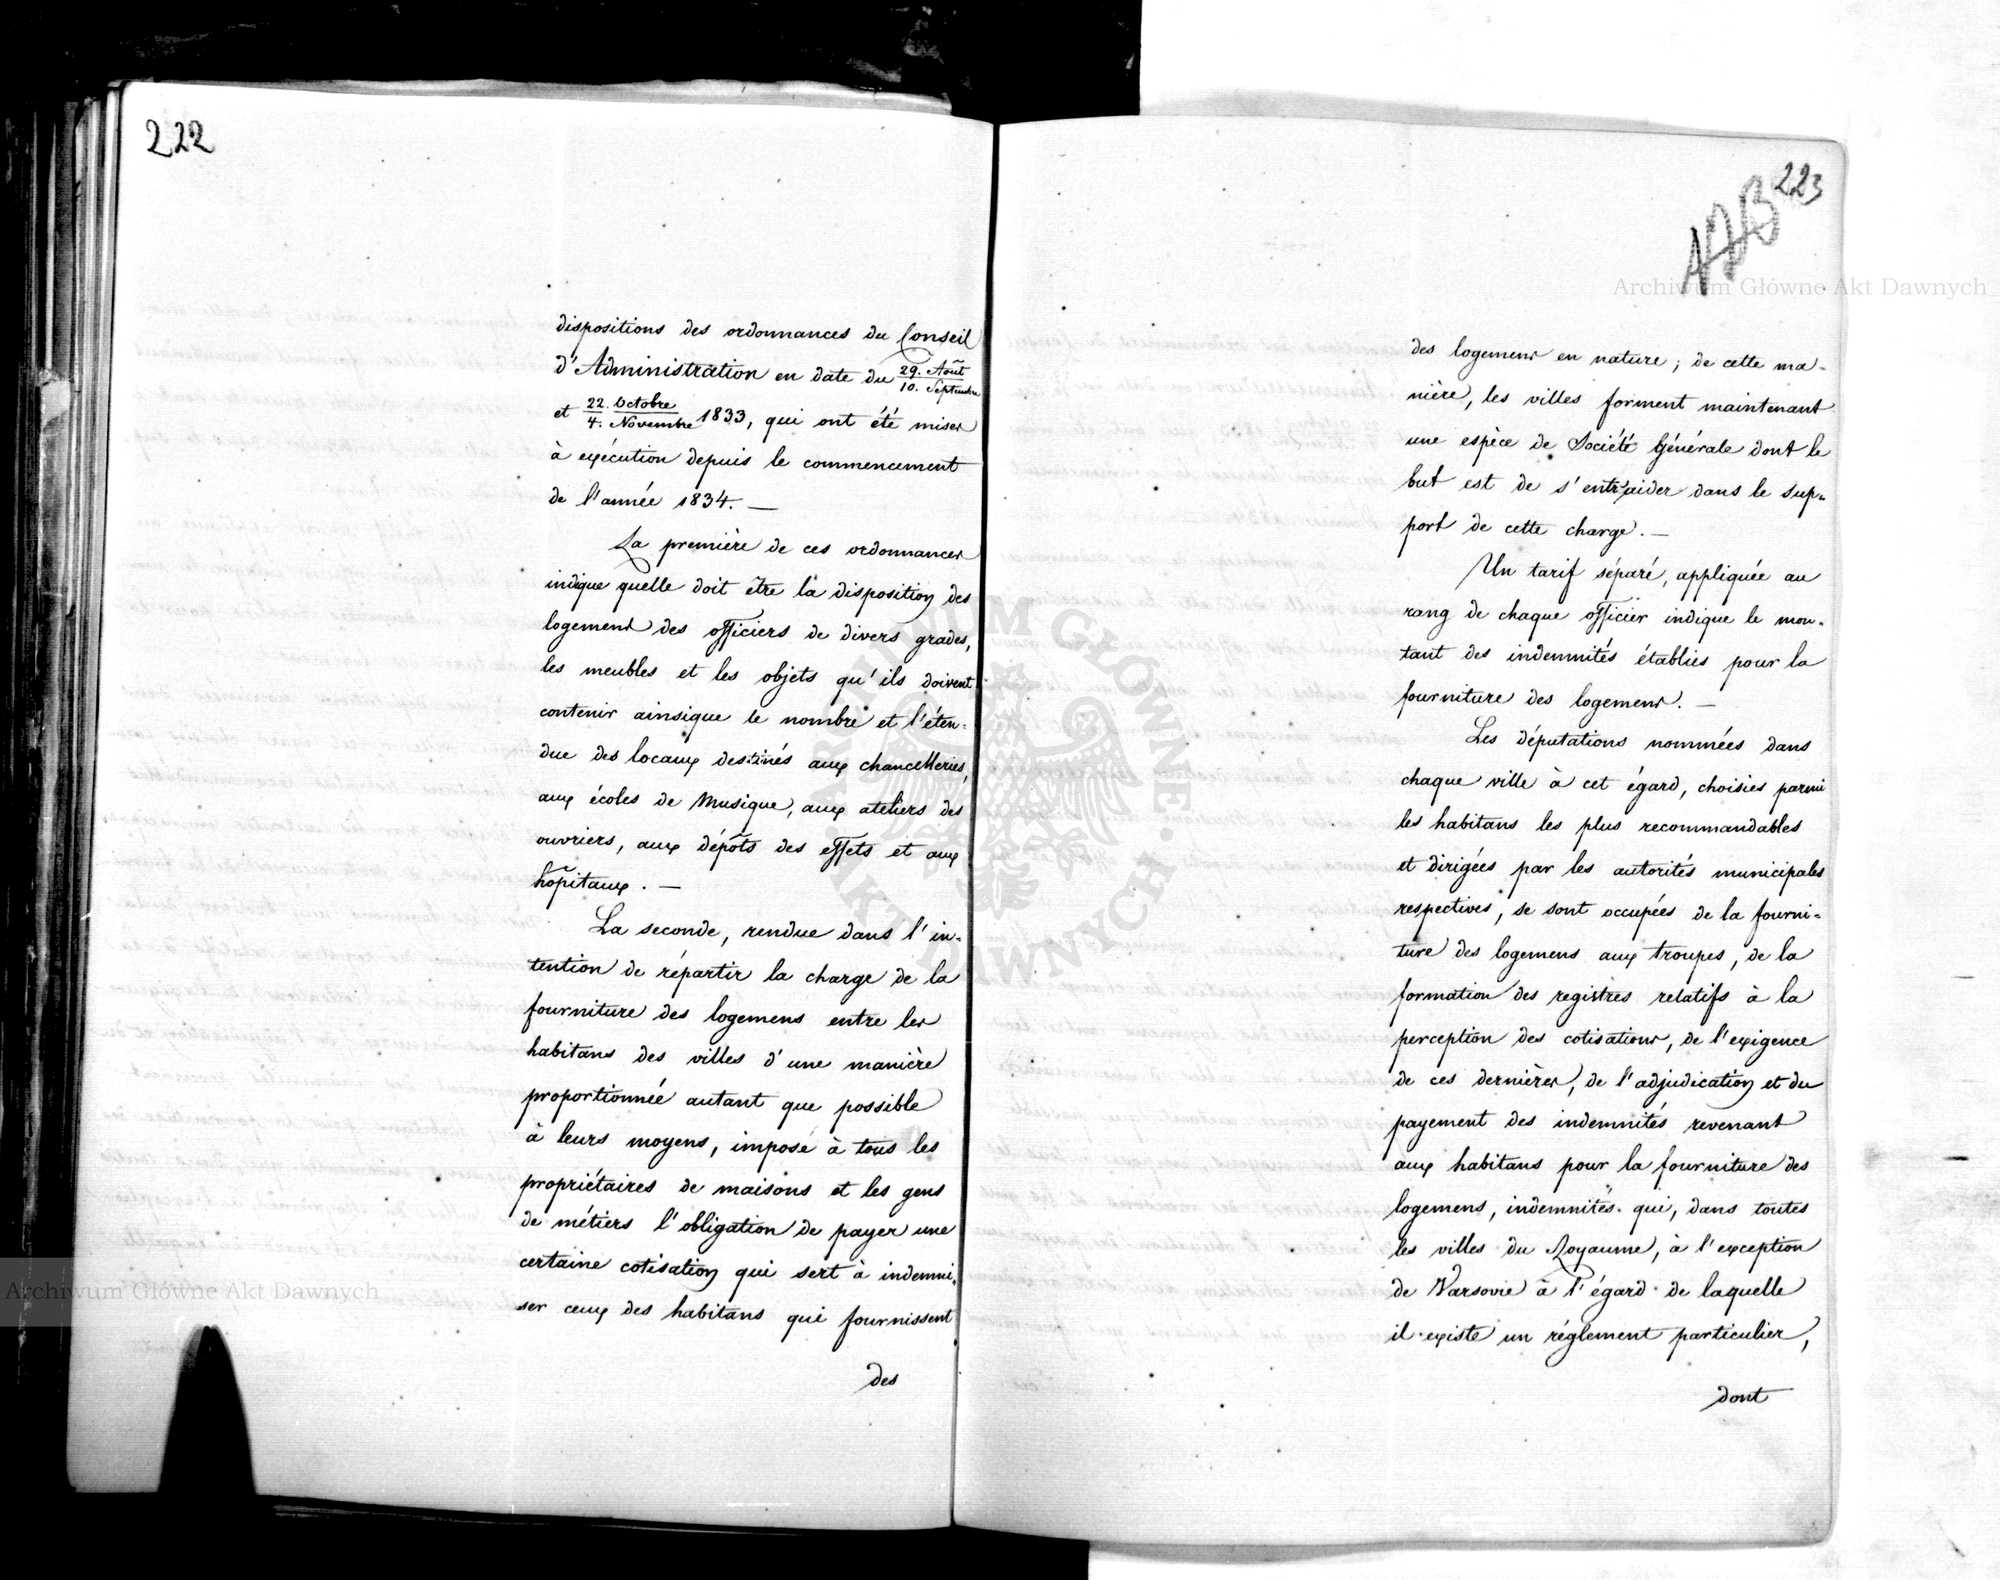 222
dispositions des ordonnances du Conseil
d'Administration en date du 29. Août / 10. Septembre
et 22. Octobre / 4. Novembre 1833, qui ont été mises
à exécution depuis le commencement
de l'année 1834. —
La première de ces ordonnances
indique quelle doit être la disposition des
logemens des officiers de divers grades,
les meubles et les objets qu'ils doivent
contenir ainsique le nombre et l'éten-
due des locaux destinés aux chancelleries,
aux écoles de Musique, aux ateliers des
ouvriers, aux dépôts des effets et aux
hôpitaux. —
La seconde, rendue dans l'in-
tention de répartir la charge de la
fourniture des logemens entre les
habitans des villes d'une manière
proportionnée autant que possible
à leurs moyens, impose à tous les
propriétaires de maisons et les gens
de métiers l'obligation de payer une
certaine cotisation qui sert à indemni-
ser ceux des habitans qui fournissent
des
223
des logemens en nature; de cette ma-
nière, les villes forment maintenant
une espèce de Société Générale dont le
but est de s'entr'aider dans le sup-
port de cette charge. —
Un tarif séparé, appliquée au
rang de chaque officier indique le mon-
tant des indemnités établies pour la
fourniture des logemens. —
Les députations nommées dans
chaque ville à cet égard, choisies parmi
les habitans les plus recommandables
et dirigées par les autorités municipales
respectives, se sont occupées de la fourni-
ture des logemens aux troupes, de la
formation des registres relatifs à la
perception des cotisations, de l'exigence
de ces dernières, de l'adjudication et du
payement des indemnités revenant
aux habitans pour la fourniture des
logemens, indemnités qui, dans toutes
les villes du Royaume, à l'exception
de Varsovie à l'égard de laquelle
il existe un réglement particulier,
dont
Archiwum Główne Akt Dawnych
Archiwum Główne Akt Dawnych
ARCHIWUM GŁÓWNE AKT DAWNYCH